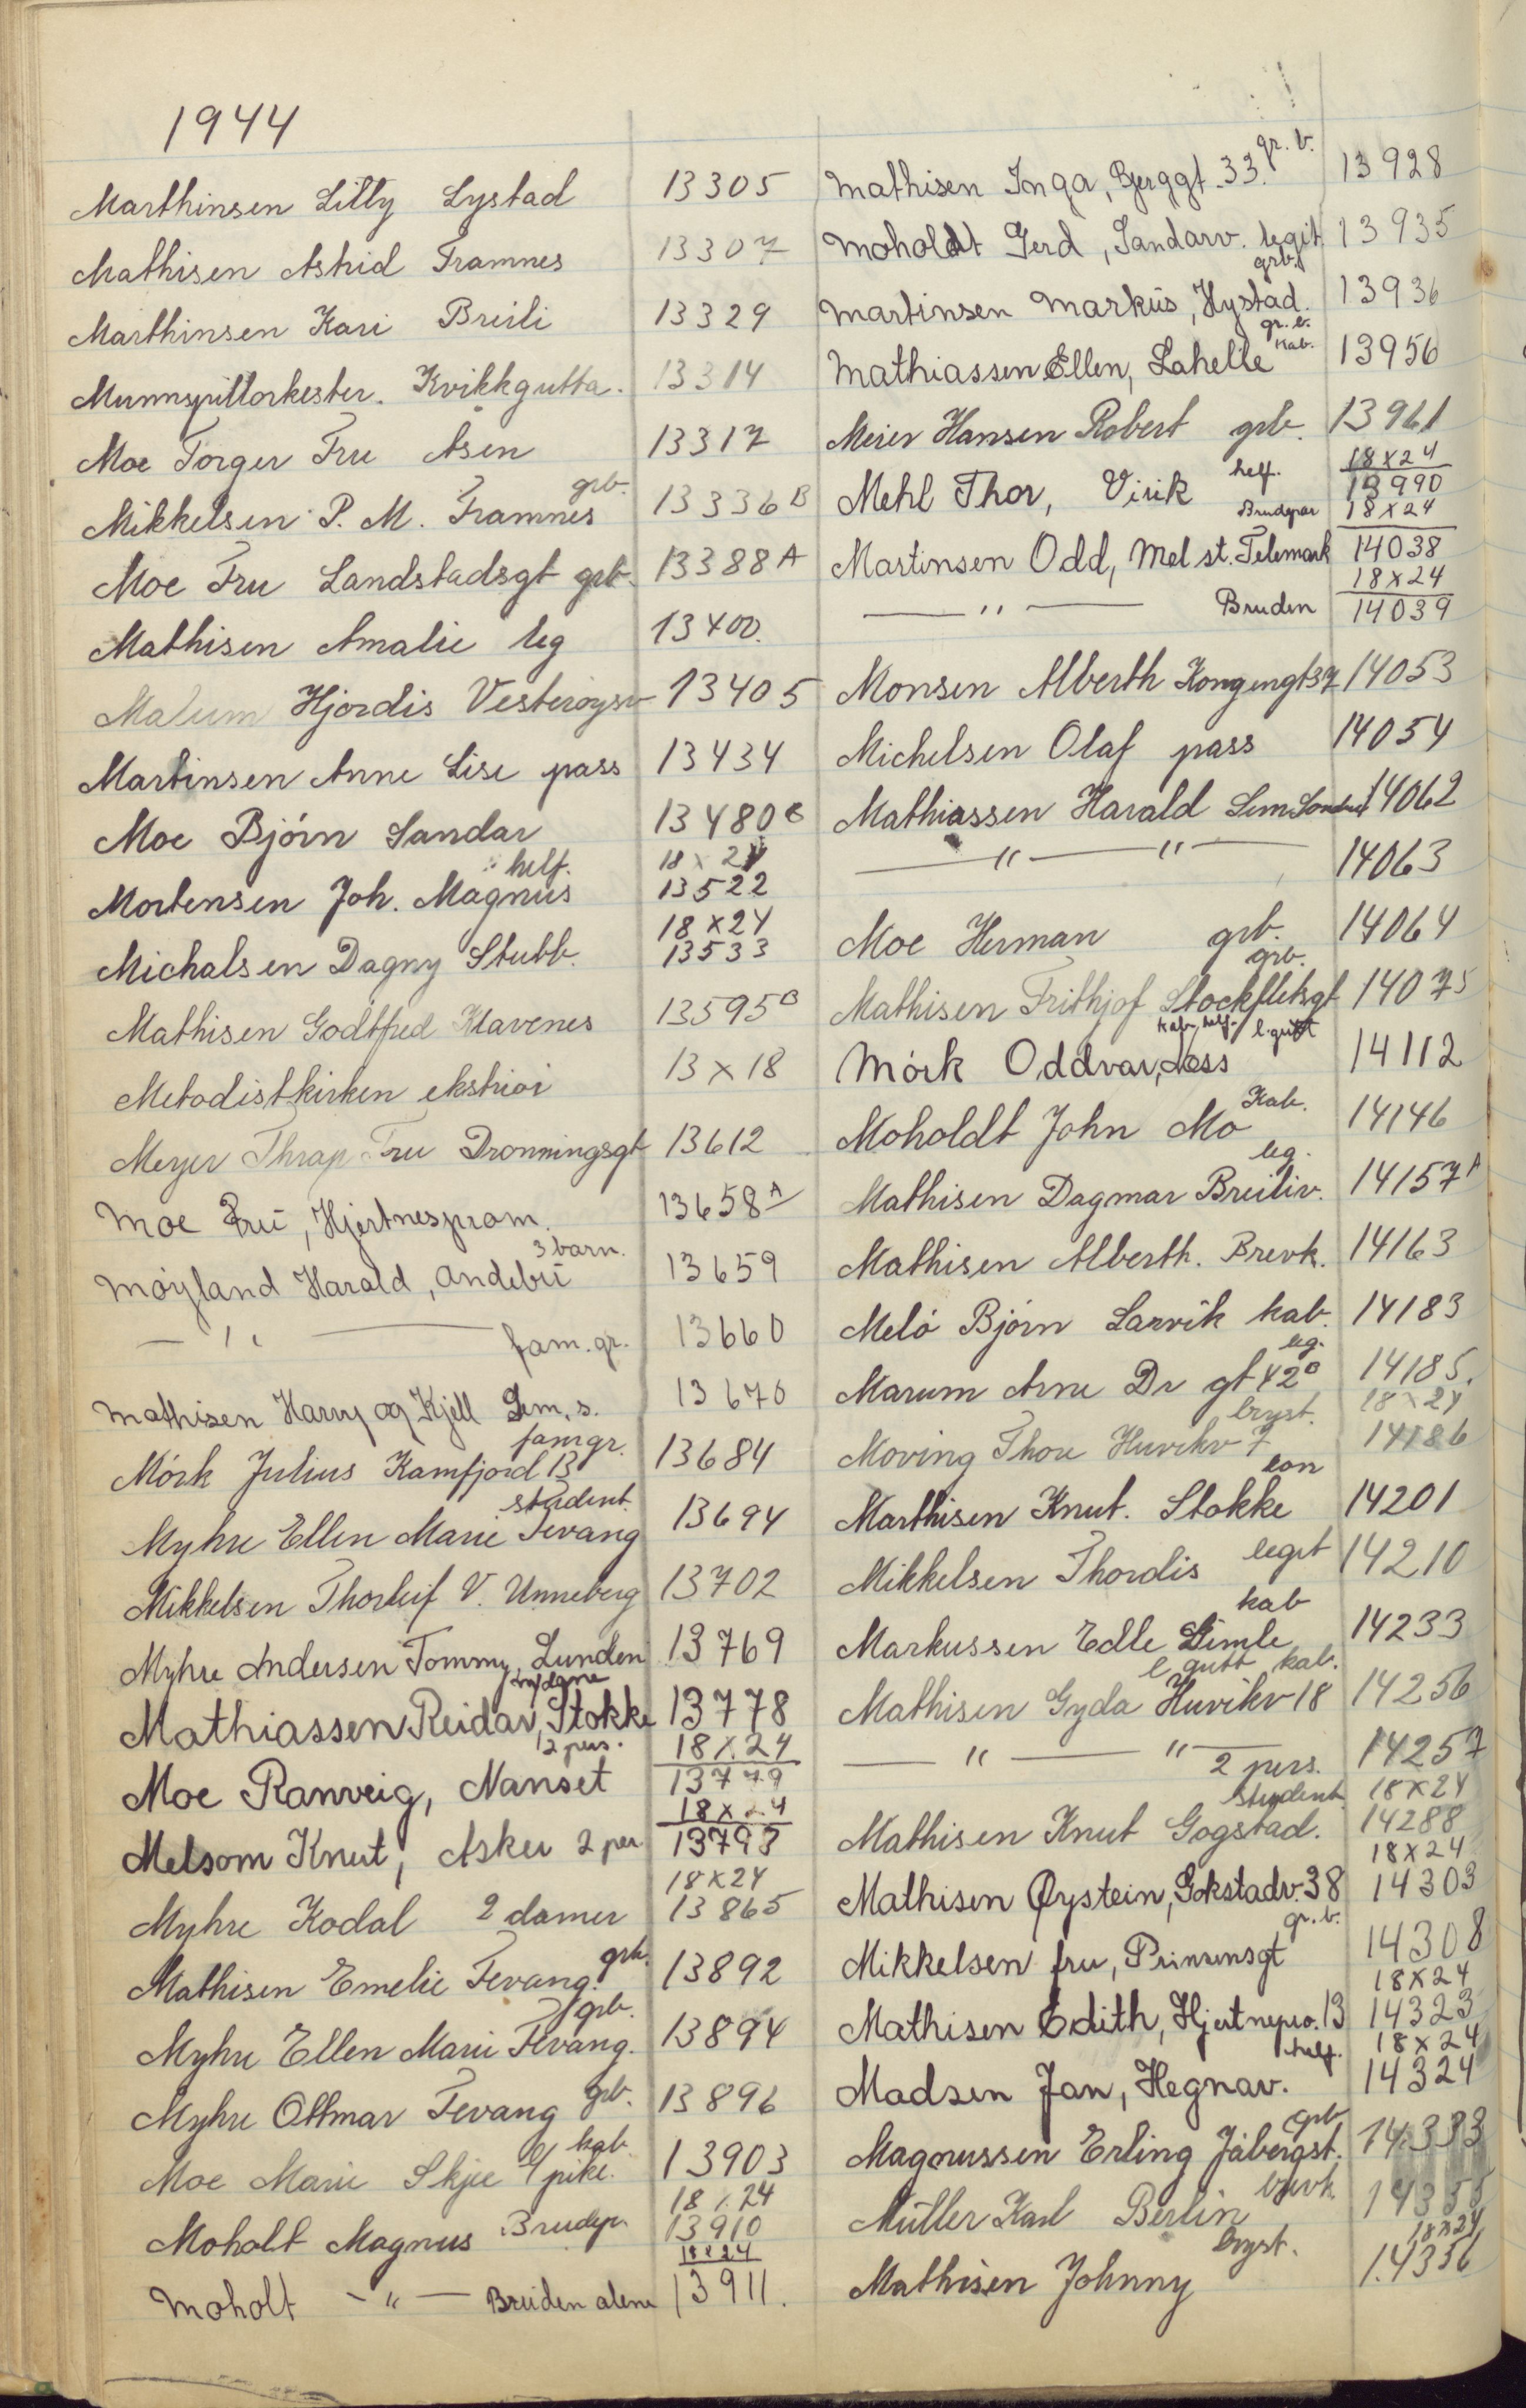 1944
Marthinsen Lilly Lystad 13305
Mathisen Astrid Framnes 13307
Marthinsen Kari Breili 13329
Munnspillorkester. Kvikkgutta. 13314
Moe Torger Fru Åsen 13317
grb.
Mikkelsen P. M. Framnes 13336 B
Moe Fru Landstadsgt grb. 13388 A
Mathisen Amalie leg 13400.
Malum Hjördis Vesterøysv 13405
Martinsen Anne Lise pass 13434
Moe Björn Sandar 13480 B
helf. 18 x 24
Mortensen Joh. Magnus 13522
18 x 24
Michalsen Dagny Stubb. 13533
Mathisen Godtfred Klavenes 13595 B
Metodistkirken ekstriör 13 x 18
Meyer Thrap Fru Dronningsgt 13612
Moe Fru, Hjertnesprom. 13658 A
3 barn.
Möyland Harald, Andebu 13659
— " — fam. gr. 13660
Mathisen Harry og Kjell Sem. s. 13670
fam gr.
Mörk Julius Kamfjord 13 13684
student.
Myhre Ellen Marie Fevang 13694
Mikkelsen Thorleif V. Unneberg 13702
Myhre Andersen Tommy, Lunden 13769
Mathiassen Reidar, Stokke 13778
2 pers. 18 x 24
Moe Ranveig, Nanset 13779
18 x 24
Melsom Knut, Asker 2 per 13793
18 x 24
Myhre Kodal 2 damer 13865
grb.
Mathisen Emelie Fevang. 13892
grb.
Myhre Ellen Marie Fevang. 13894
Myhre Ottmar Fevang grb. 13896
kab.
Moe Marie Skjee l/pike. 13903
18 x 24
Moholt Magnus Brudep. 13910
18 x 24
Moholt — " — Bruden alene 13911.
gr. b.
Mathisen Inga, Bjerggt. 33. 13928
Moholdt Gerd, Sandarv. legit 13935
grb.
Martinsen Markus, Hystad. 13936
gr. b.
kab.
Mathiassen Ellen, Lahelle 13956
Meier Hansen Robert grb. 13961
helf. 18 x 24
Mehl Thor, Virik 13990
Brudepar 18 x 24
Martinsen Odd, Mel st. Telemark 14038
18 x 24
— " — Bruden 14039
Monsen Alberth Kongengt 37 14053
Michelsen Olaf pass 14054
Mathiassen Harald Sem Sandar 14062
— " — " — 14063
Moe Herman grb. 14064
grb.
Mathisen Frithjof Stockfletsgt 14075
kab. helf. l. gutt
Mörk Oddvar, Hess 14112
Kab.
Moholdt John Mo 14146
leg.
Mathisen Dagmar Breiliv. 14157 A
Mathisen Alberth. Brevk. 14163
Melö Björn Larvik kab. 14183
leg.
Marum Arne Dr gt 42 B 14185.
bryst. 18 x 24
Moving Thore Huvikv 7 14186
con
Marthisen Knut. Stokke 14201
Mikkelsen Thordis legit 14210
kab
Markussen Edle Gimle 14233
l gutt kab.
Mathisen Gyda Huvikv 18 14256
— " — " — 2 pers. 14257
student. 18 x 24
Mathisen Knut Gogstad. 14288
18 x 24
Mathisen Øystein, Gokstadv. 38 14303
gr. b.
Mikkelsen fru, Prinsensgt 14308
18 x 24
Mathisen Edith, Hjertnepro. 13 14323
helf. 18 x 24
Madsen Jan, Hegnav. 14324
grb
Magnussen Erling Jåbergst. 14333
Müller Karl Berlin 14355
bryst. 18 x 24
Mathisen Johnny 14356